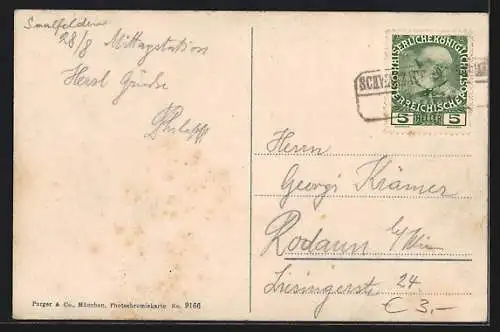 Saalfelden
28/8 Mittagstation
Herzl Grüsse
KAISERLICHEKÖNIGLICHE
ÖSTERREICHISCHE
5 HELLER 5
Herrn
Georg Krämer
Rodaun b/Wien
Liesingerstr 24
€ 3,-
Purger & Co., München, Photochromiekarte No. 9166